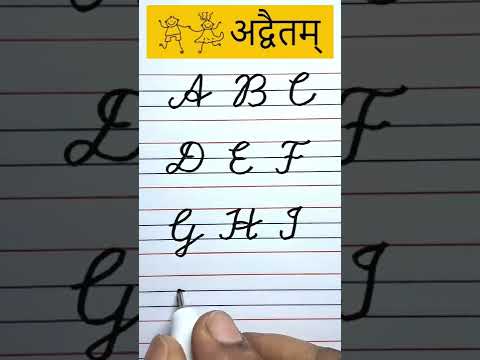 अद्वैतम्
A B C
D E F
G H I